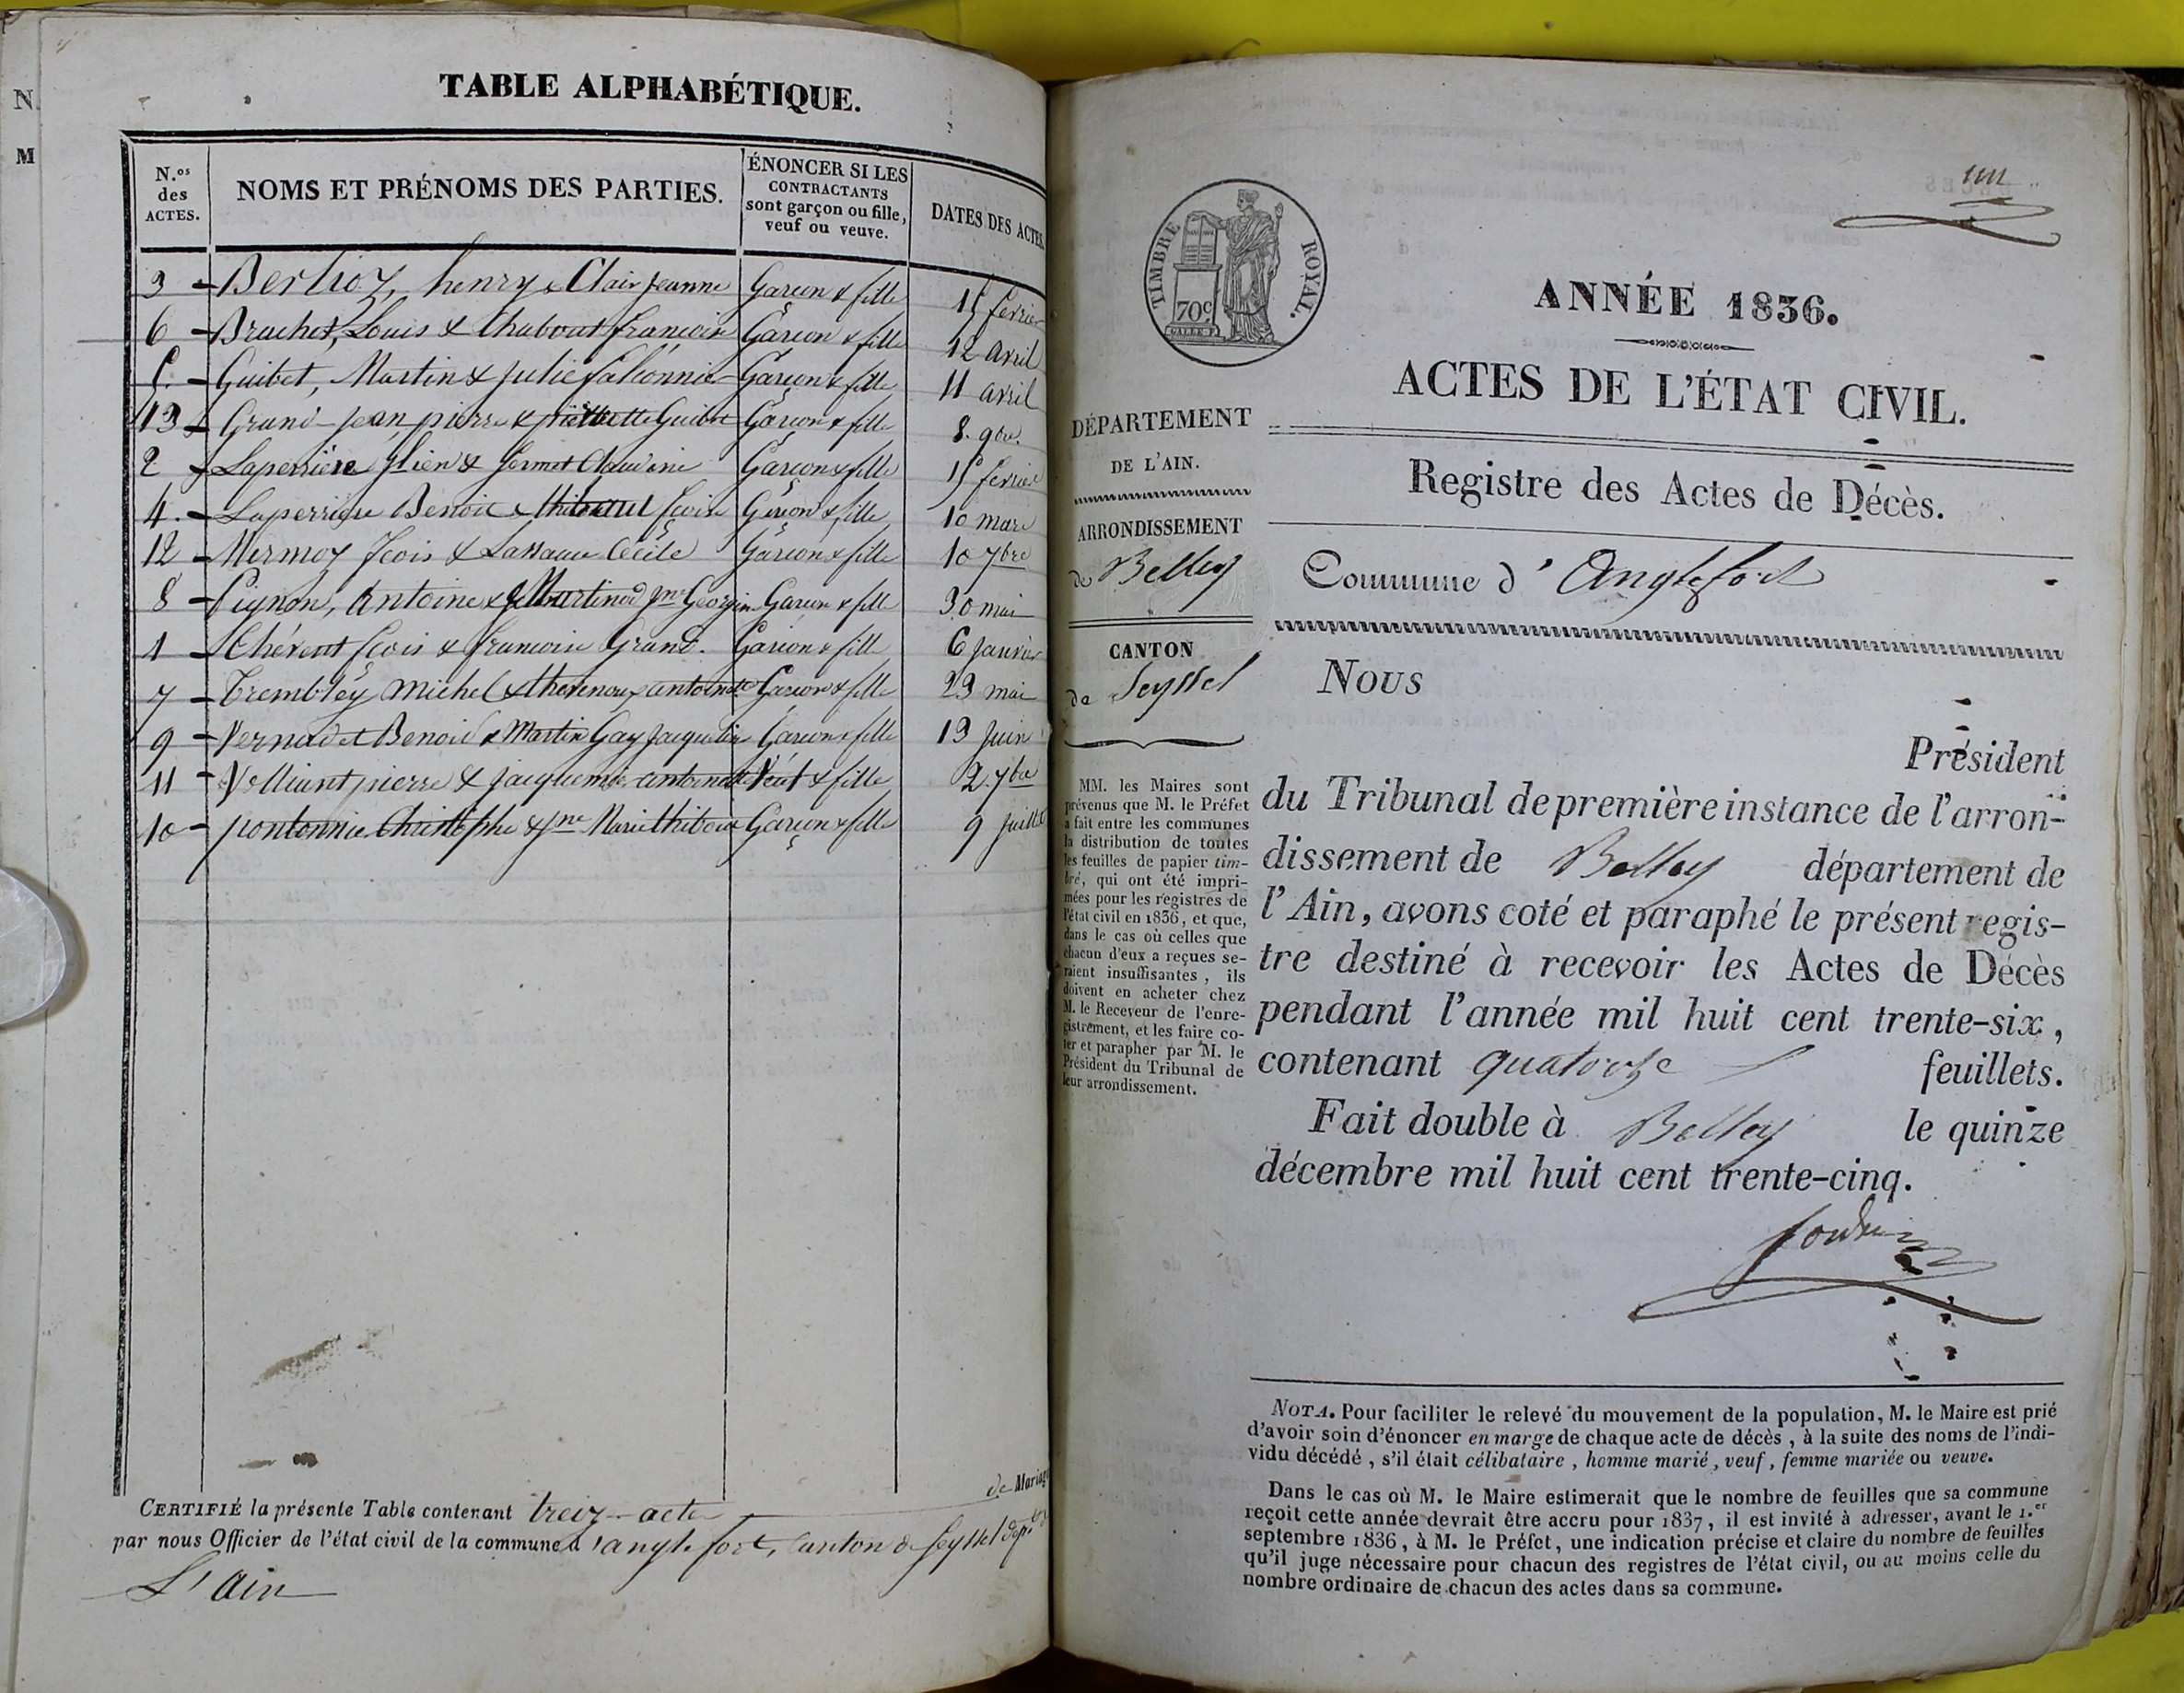 N
M
TABLE ALPHABÉTIQUE.
N.os des ACTES.
NOMS ET PRÉNOMS DES PARTIES.
ÉNONCER SI LES CONTRACTANTS sont garçon ou fille, veuf ou veuve.
DATES DES ACTES
3 - Berlioz, henry & Clair jeanne Garçon & fille 15 fevrier
6 - Brachet, Louis & Chaboud françoise Garçon & fille 12 avril
5. - Guibet, Martin & julie Garçon & fille 11 avril
13 - Grand jean pierre & Guibet Garçon & fille 8. 9bre.
2 - Laperriere & fermet Claudine Garçon & fille 15 fevrier
4. - Laperriere Benoit & thibaud fcoise Garçon & fille 10 mars
12 - Mermoz fcois & Cécile Garçon & fille 10 7bre
8 - Pignon, Antoine & Martinod Garçon & fille 30 mai
1 - fcois & francoise Grand. Garçon & fille 6 Janvier
7 - Trembley Michel & antoinette Garçon & fille 23 mai
9 - Vernadet Benoid & Martin Gay Garçon & fille 13 Juin
11 - pierre & jacquemie antoinette Veuf & fille 2. 7bre
10 - pontonnie Christophe & jne Marie thiboud Garçon & fille 9 juillet
CERTIFIÉ la présente Table contenant treiz acte de Mariage
par nous Officier de l'état civil de la commune d'anglefort, Canton de Seyssel dept.
L'ain
un
TIMBRE ROYAL.
70c
ANNÉE 1836.
ACTES DE L'ÉTAT CIVIL.
DÉPARTEMENT
DE L'AIN.
ARRONDISSEMENT
de Belley
CANTON
de Seyssel
Registre des Actes de Décès.
Commune d'Anglefort
Nous
Président
du Tribunal de première instance de l'arron-
dissement de Belley département de
l'Ain, avons coté et paraphé le présent regis-
tre destiné à recevoir les Actes de Décès
pendant l'année mil huit cent trente-six,
contenant quatorze feuillets.
Fait double à Belley le quinze
décembre mil huit cent trente-cinq.
MM. les Maires sont
prévenus que M. le Préfet
a fait entre les communes
la distribution de toutes
les feuilles de papier tim-
bré, qui ont été impri-
mées pour les registres de
l'état civil en 1836, et que,
dans le cas où celles que
chacun d'eux a reçues se-
raient insuffisantes, ils
doivent en acheter chez
M. le Receveur de l'enre-
gistrement, et les faire co-
ter et parapher par M. le
Président du Tribunal de
leur arrondissement.
NOTA. Pour faciliter le relevé du mouvement de la population, M. le Maire est prié
d'avoir soin d'énoncer en marge de chaque acte de décès, à la suite des noms de l'indi-
vidu décédé, s'il était célibataire, homme marié, veuf, femme mariée ou veuve.
Dans le cas où M. le Maire estimerait que le nombre de feuilles que sa commune
reçoit cette année devrait être accru pour 1837, il est invité à adresser, avant le 1.er
septembre 1836, à M. le Préfet, une indication précise et claire du nombre de feuilles
qu'il juge nécessaire pour chacun des registres de l'état civil, ou au moins celle du
nombre ordinaire de chacun des actes dans sa commune.